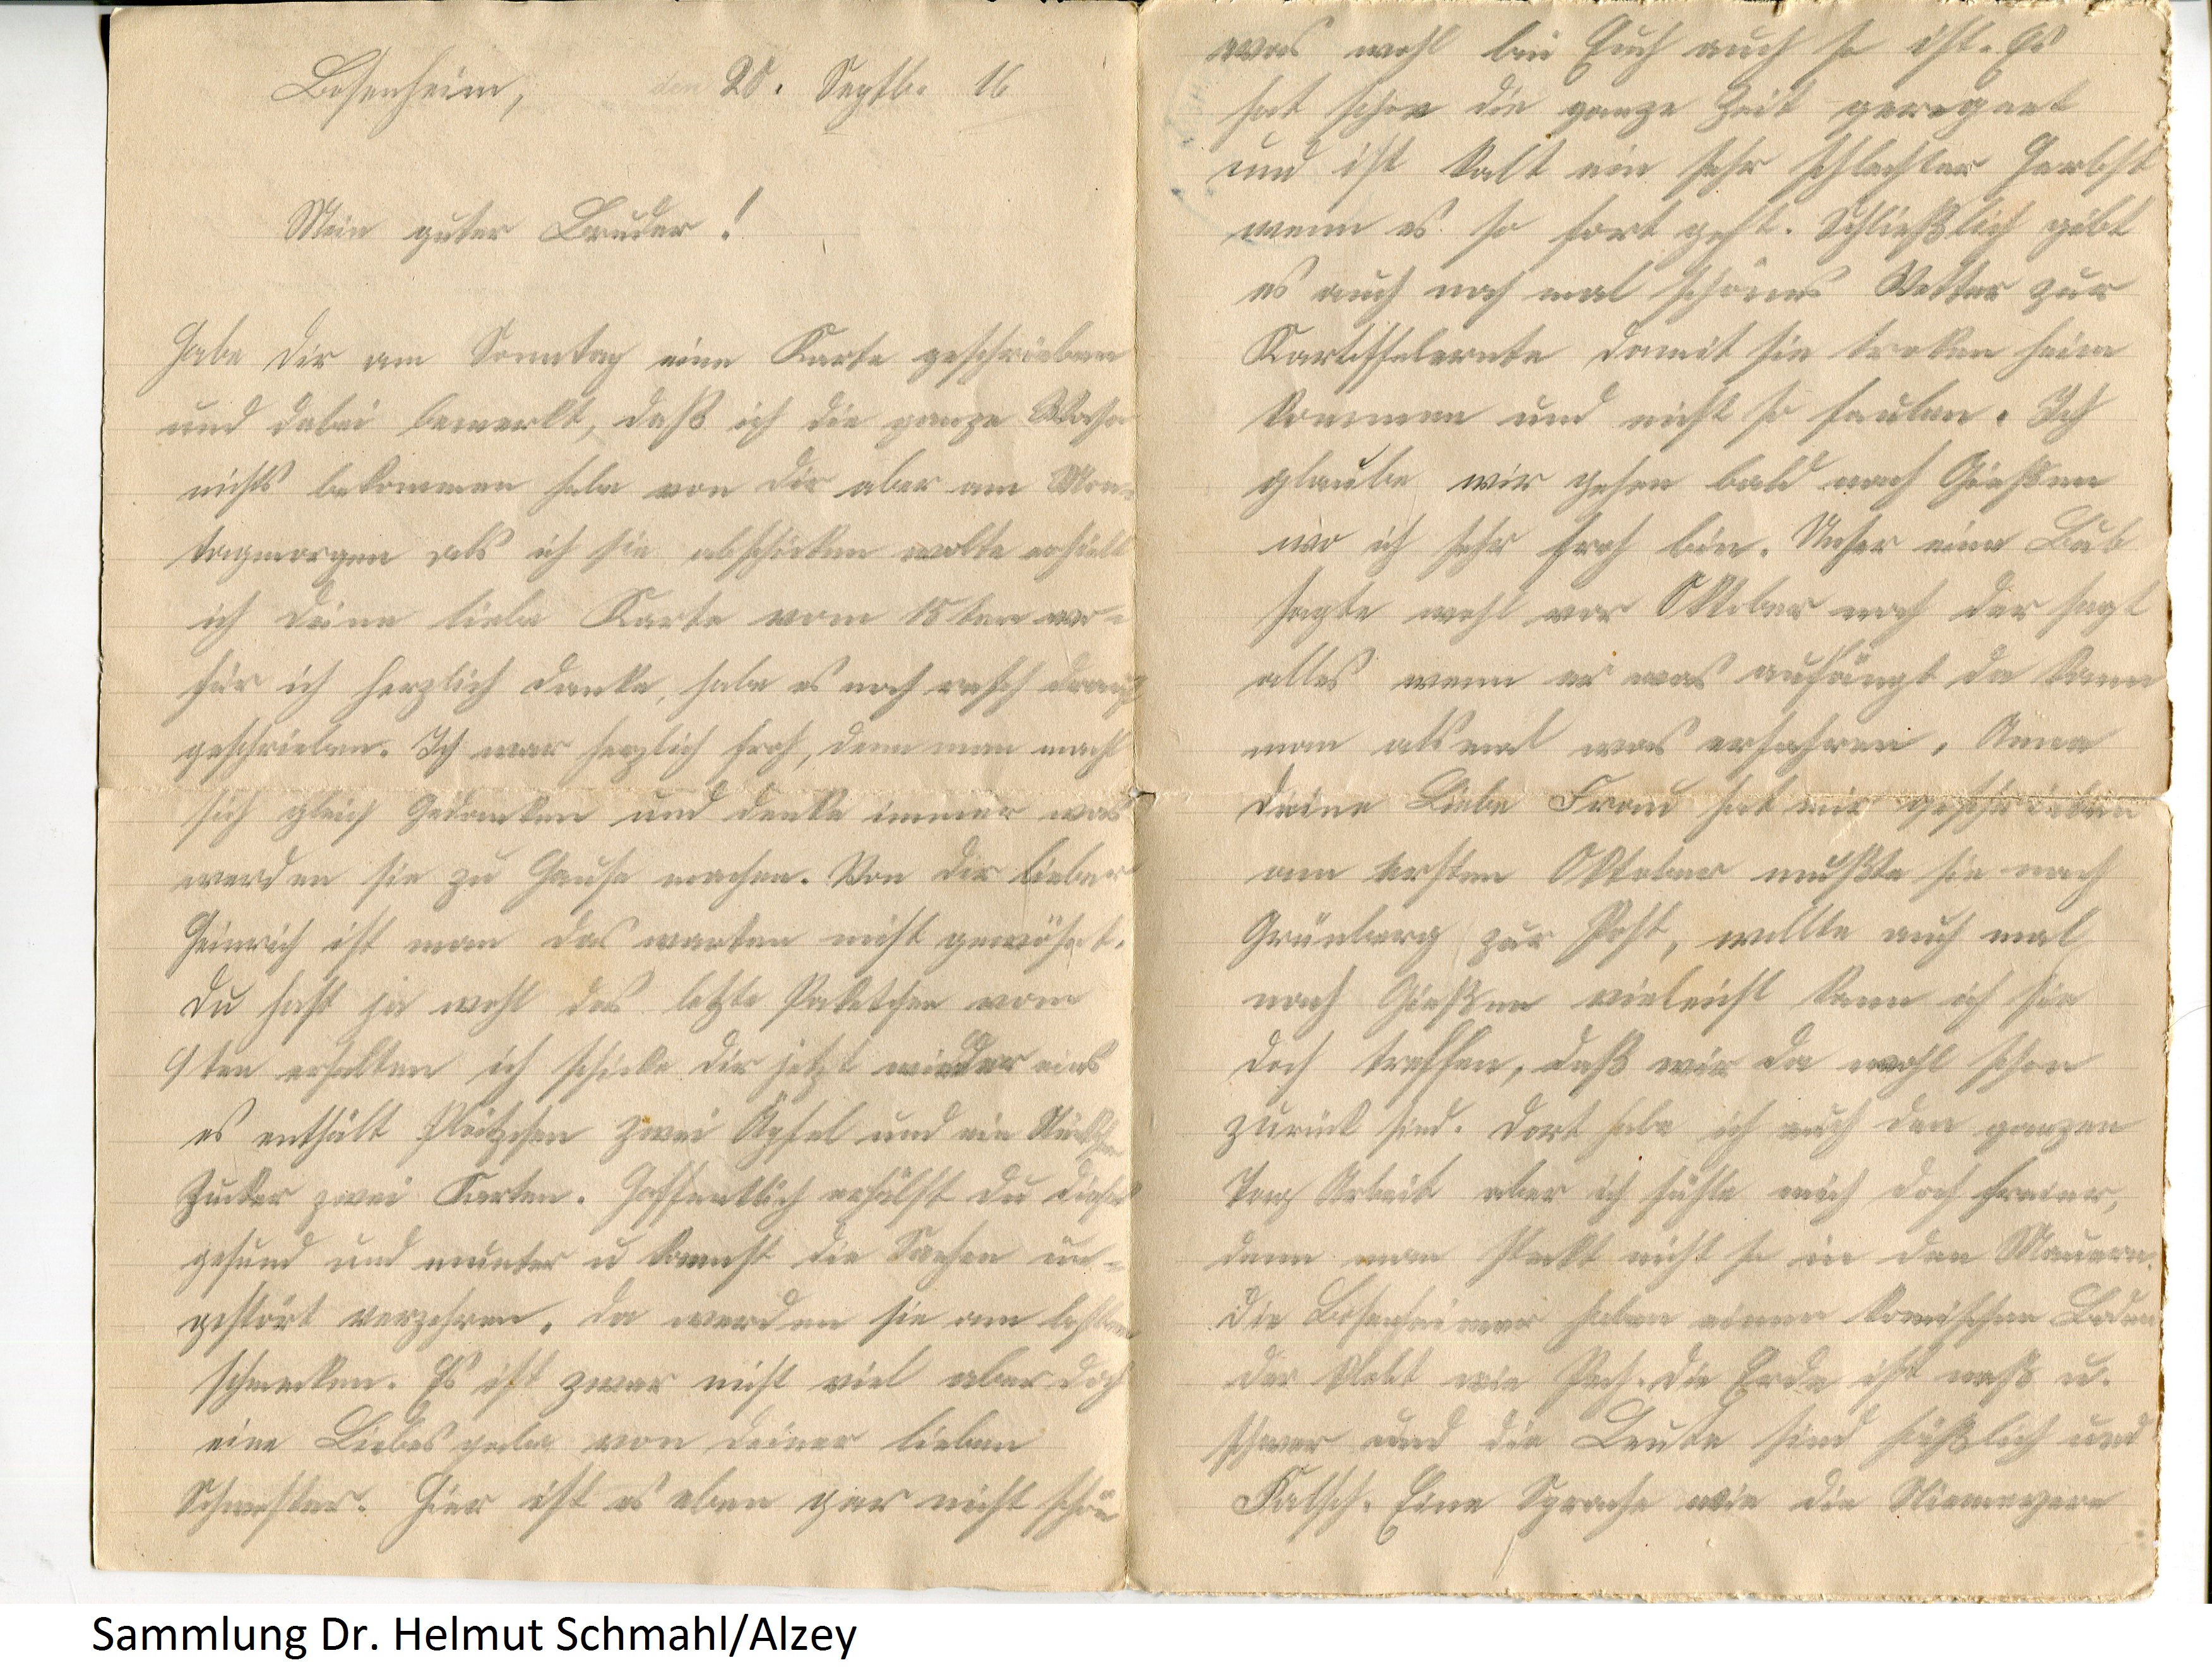 Bosenheim, den 20. Septb. 16
Mein guter Bruder!
Habe dir am Sonntag eine Karte geschrieben
und dabei bemerkt, daß ich die ganze Woche
nichts bekommen habe von dir aber am Mon-
tagmorgen als ich sie abschicken wolte erhielt
ich deine liebe Karte vom 15ten wo-
für ich herzlich danke, habe es noch rasch drauf
geschrieben. Ich war herzlich froh, denn man macht
sich gleich Gedanken und denke immer was
werden sie zu Hause machen. Von dir lieber
Heinrich ist man das warten nicht gewöhnt.
Du hast ja wohl das letzte Paketchen vom
9ten erhalten ich schicke dir jetzt wieder eins
es enthält Plätzchen zwei Äpfel und ein Stückchen
Zucker zwei Karten. Hoffentlich erhälst du dieses
gesund und munter u kannst die Sachen un-
gestört verzehren, da werden sie am besten
schmecken. Es ist zwar nicht viel aber doch
eine Liebesgabe von deiner lieben
Schwester. Hier ist es eben gar nicht schön
was wohl bei Euch auch so ist. Es
hat schon die ganze Zeit geregnet
und ist kalt ein sehr schlechter Herbst
wenn es so fort geht. Schließlich gibt
es auch noch mal schönes Wetter zur
Kartoffelernte damit sie troken heim
kommen und nicht so faulen. Ich
glaube wir gehen bald nach Gießen
wo ich sehr froh bin. Unser eine Bub
sagte wohl vor Oktober noch der sagt
alles wenn er was aufängt da kann
man alsmal was erfahren. Anna
deine Liebe Frau hat mir geschrieben
am ersten Oktober mußte sie nach
Grünberg zur Post, wollte auch mal
nach Gießen vieleicht kann ich sie
doch treffen, daß wir da wohl schon
zurück sind. Dort habe ich auch den ganzen
Tag Arbeit aber ich fühle mich doch freier,
denn man stekt nicht so in den Mauern.
Die Bosenheimer haben einen komischen Boden
der klebt wie Pech. Die Erde ist naß u.
schwer und die Leute sind häßlich und
Falsch. Eine Sprache wie die
Sammlung Dr. Helmut Schmahl/Alzey